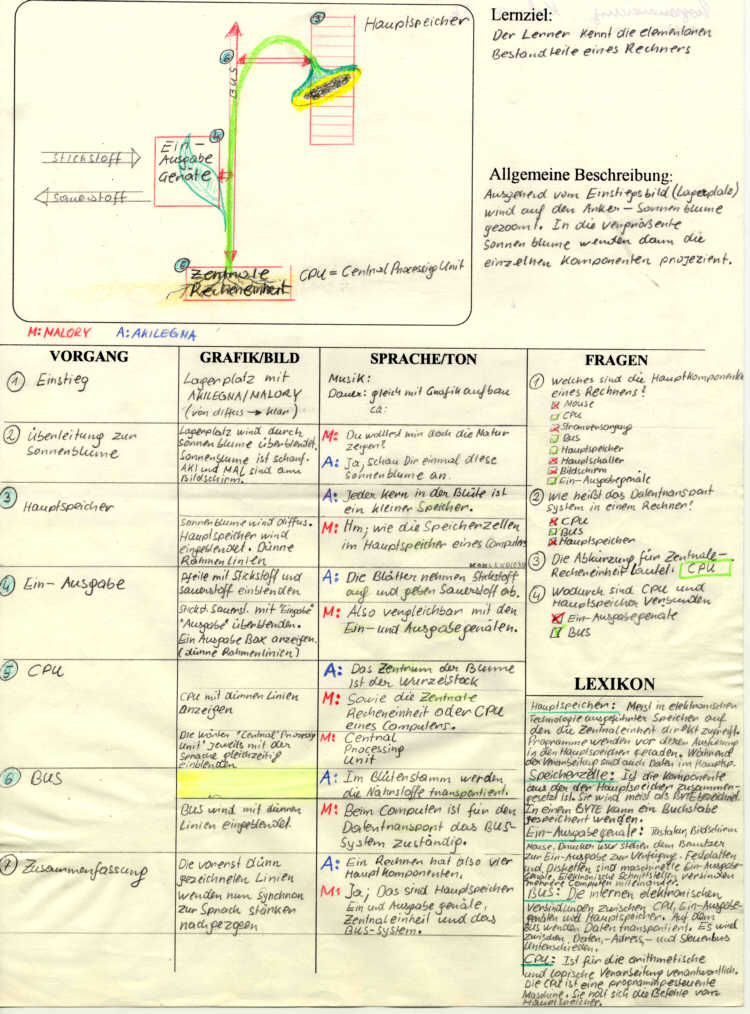 ③ Hauptspeicher
⑥ BUS
④ Ein-
Ausgabe
Geräte
Stickstoff
Sauerstoff
⑤ Zentrale
Recheneinheit
CPU = Central Processing Unit
M: MALORY A: AKILEGNA
Lernziel:
Der Lerner kennt die elementaren
Bestandteile eines Rechners
Allgemeine Beschreibung:
Ausgehend vom Einstiegsbild (Lagerplatz)
wird auf den Anker-Sonnenblume
gezoomt. In die vergrößerte
Sonnenblume werden dann die
einzelnen Komponenten projeziert.
VORGANG GRAFIK/BILD SPRACHE/TON
① Einstieg
Lagerplatz mit
AKILEGNA/MALORY
(von diffus → klar)
Musik:
Dauer: gleich mit Grafikaufbau
ca:
② Überleitung zur
Sonnenblume
Lagerplatz wird durch
Sonnenblume überblendet.
Sonnenblume ist scharf.
AKI und MAL sind am
Bildschirm.
M: Du wolltest mir doch die Natur
zeigen?
A: Ja, schau Dir einmal diese
Sonnenblume an.
③ Hauptspeicher
Sonnenblume wird diffus.
Hauptspeicher wird
eingeblendet. Dünne
Rahmenlinien
A: Jeder Kern in der Blüte ist
ein kleiner Speicher.
M: Hm, wie die Speicherzellen
im Hauptspeicher eines Computers
④ Ein-Ausgabe
Pfeile mit Stickstoff und
Sauerstoff einblenden
Stickst. Sauerst. mit "Eingabe"
"Ausgabe" überblenden.
Ein Ausgabe Box anzeigen.
(dünne Rahmenlinien)
A: Die Blätter nehmen Stickstoff
auf und geben Sauerstoff ab.
M: Also vergleichbar mit den
Ein- und Ausgabegeräten.
⑤ CPU
CPU mit dünnen Linien
Anzeigen
Die Wörter "Central" Processing
Unit" jeweils mit der
Sprache gleichzeitig
einblenden
A: Das Zentrum der Blume
ist der Wurzelstock
M: Sowie die Zentrale
Recheneinheit oder CPU
eines Computers.
M: Central
Processing
Unit
⑥ BUS
BUS wird mit dünnen
Linien eingeblendet.
A: Im Blütenstamm werden
die Nährstoffe transportiert.
M: Beim Computer ist für den
Datentransport das BUS-
System zuständig.
⑦ Zusammenfassung
Die vorerst dünn
gezeichneten Linien
werden nun synchron
zur Sprach stärker
nachgezogen
A: Ein Rechner hat also vier
Hauptkomponenten.
M: Ja; Das sind Hauptspeicher
Ein und Ausgabe geräte,
Zentraleinheit und das
BUS-System.
FRAGEN
① Welches sind die Hauptkomponenten
eines Rechners!
Mouse
CPU
Stromversorgung
Bus
Hauptspeicher
Hauptschalter
Bildschirm
Ein-Ausgabegeräte
② Wie heißt das Datentransport
system in einem Rechner!
CPU
BUS
Hauptspeicher
③ Die Abkürzung für Zentrale-
Recheneinheit lautet. CPU
④ Wodurch sind CPU und
Hauptspeicher verbunden
Ein-Ausgabegeräte
BUS
LEXIKON
Hauptspeicher: Meist in elektronischer
Technologie ausgeführter Speicher auf
den die Zentraleinheit direkt zugreift.
Programme werden vor deren Ausführung
in den Hauptspeicher geladen. Während
der Verarbeitung sind auch Daten im Hauptsp.
Speicherzelle: Ist die Komponente
aus der der Hauptspeicher zusammen-
gesetzt ist. Sie wird meist als BYTE bezeichnet.
In einem BYTE kann ein Buchstabe
gespeichert werden.
Ein-Ausgabegeräte: Tastatur, Bildschirm
Mouse, Drucker usw stehen dem Benutzer
zur Ein-Ausgabe zur Verfügung. Festplatten
und Disketten sind maschinelle Ein-Ausgabe-
geräte. Elektronische Schnittstellen verbinden
mehrere Computer miteinander.
BUS: Die internen elektronischen
Verbindungen zwischen CPU, Ein-Ausgabe-
geräten und Hauptspeicher. Auf dem
BUS werden Daten transportiert. Es wird
zwischen Daten-, Adress-, und Steuerbus
unterschieden.
CPU: Ist für die arithmetische
und logische Verarbeitung verantwortlich.
Die CPU ist eine programmgesteuerte
Maschine. Sie holt sich die Befehle vom
Hauptspeicher.